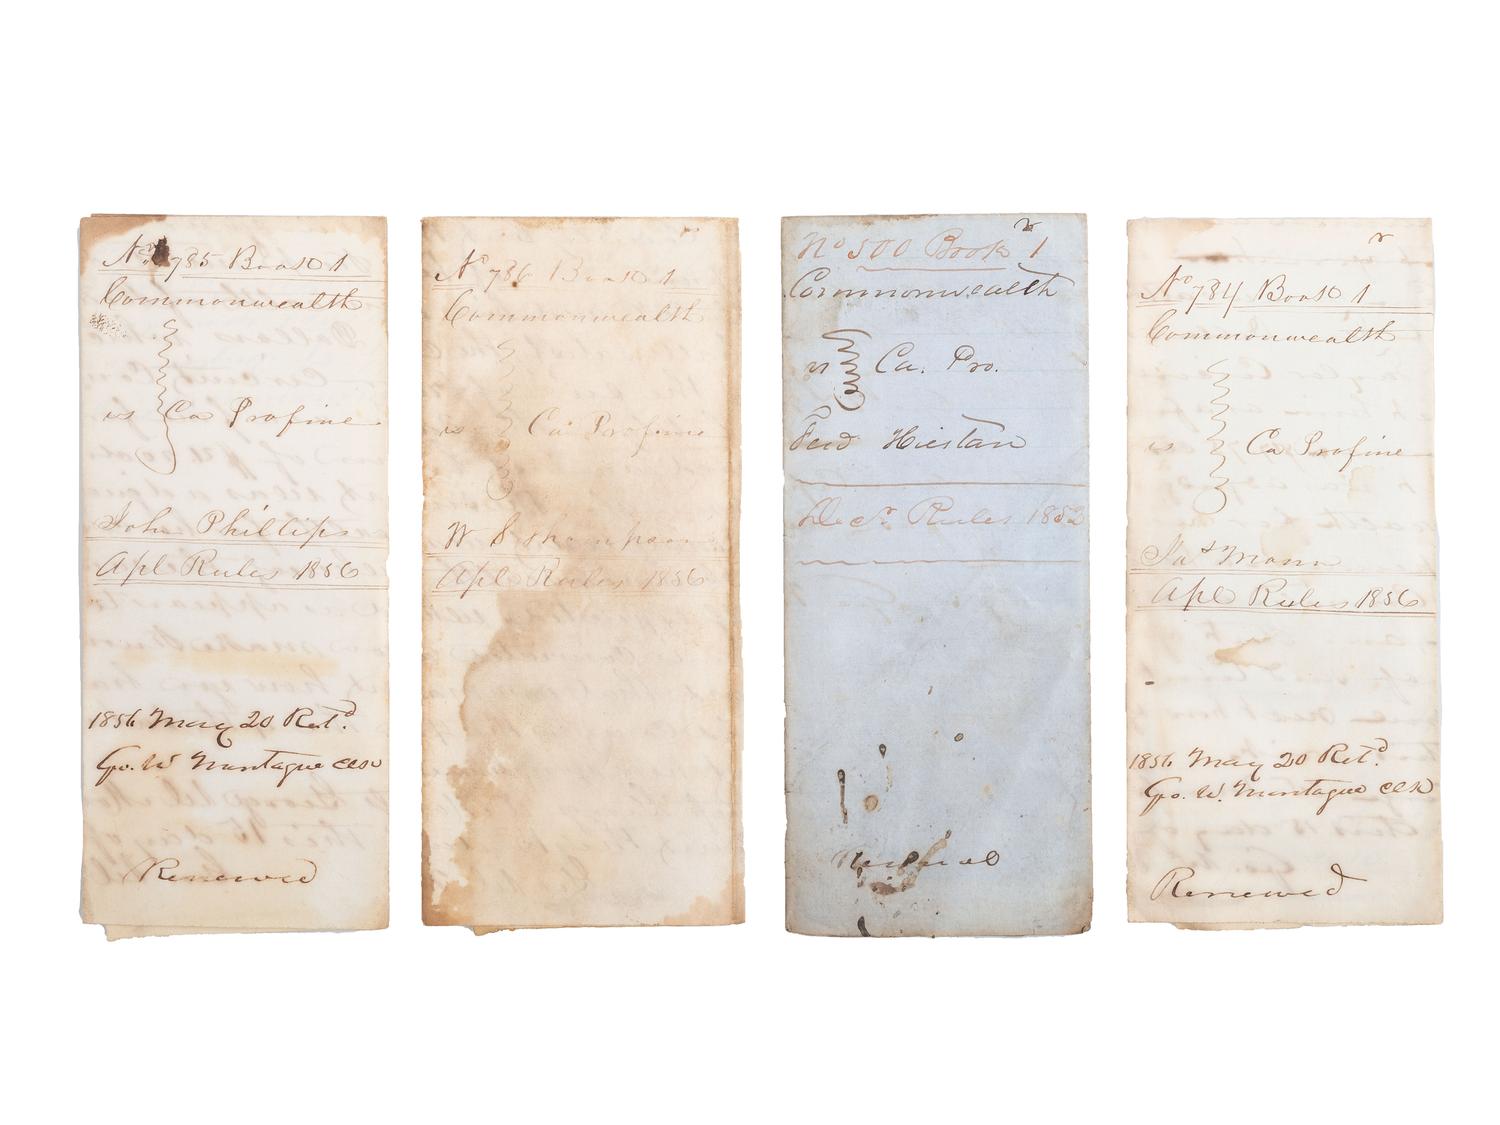 No 785 Book 1
Commonwealth
vs Ca Profine
John Phillips
Apl Rules 1856
1856 May 20 Retd.
Geo. W Montague
Renewed
No 786 Book 1
Commonwealth
vs Ca Profine
W S Thompson
Apl Rules 1856
No 500 Book 1
Commonwealth
vs Ca. Pro.
Ferd Hiestan
Decr. Rules 1852
No 784 Book 1
Commonwealth
vs Ca Profine
Mann
Apl Rules 1856
1856 May 20 Retd.
Geo. W. Montague
Renewed